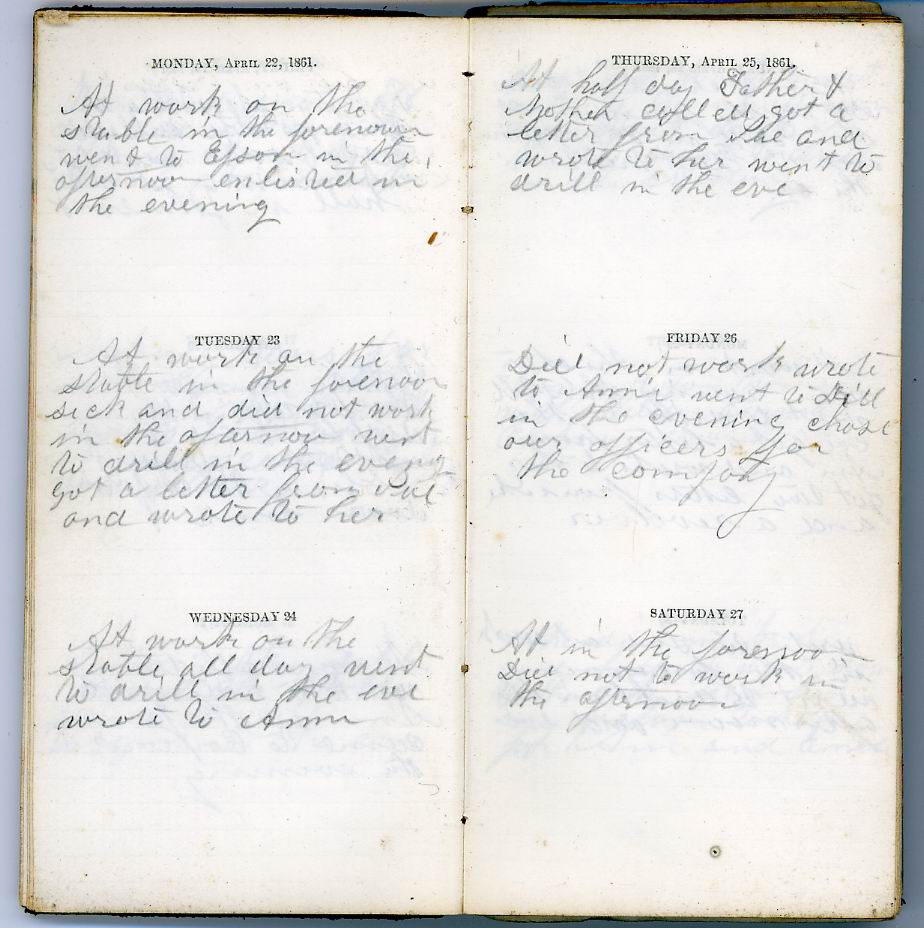 MONDAY, APRIL 22, 1861.
At work on the
stable in the forenoon
went to Epsom in the
afternoon enlisted in
the evening
TUESDAY 23
At work on the
stable in the forenoon
sick and did not work
in the afternoon went
to drill in the evening
got a letter from
and wrote to her
WEDNESDAY 24
At work on the
stable all day went
to drill in the eve
wrote to Annie
THURSDAY, APRIL 25, 1861.
At half day Father &
Mother called got a
letter from and
wrote to her went to
drill in the eve
FRIDAY 26
Did not work wrote
to Annie went to Drill
in the evening chose
our officers for
the company
SATURDAY 27
At in the forenoon
Did not to work in
the afternoon